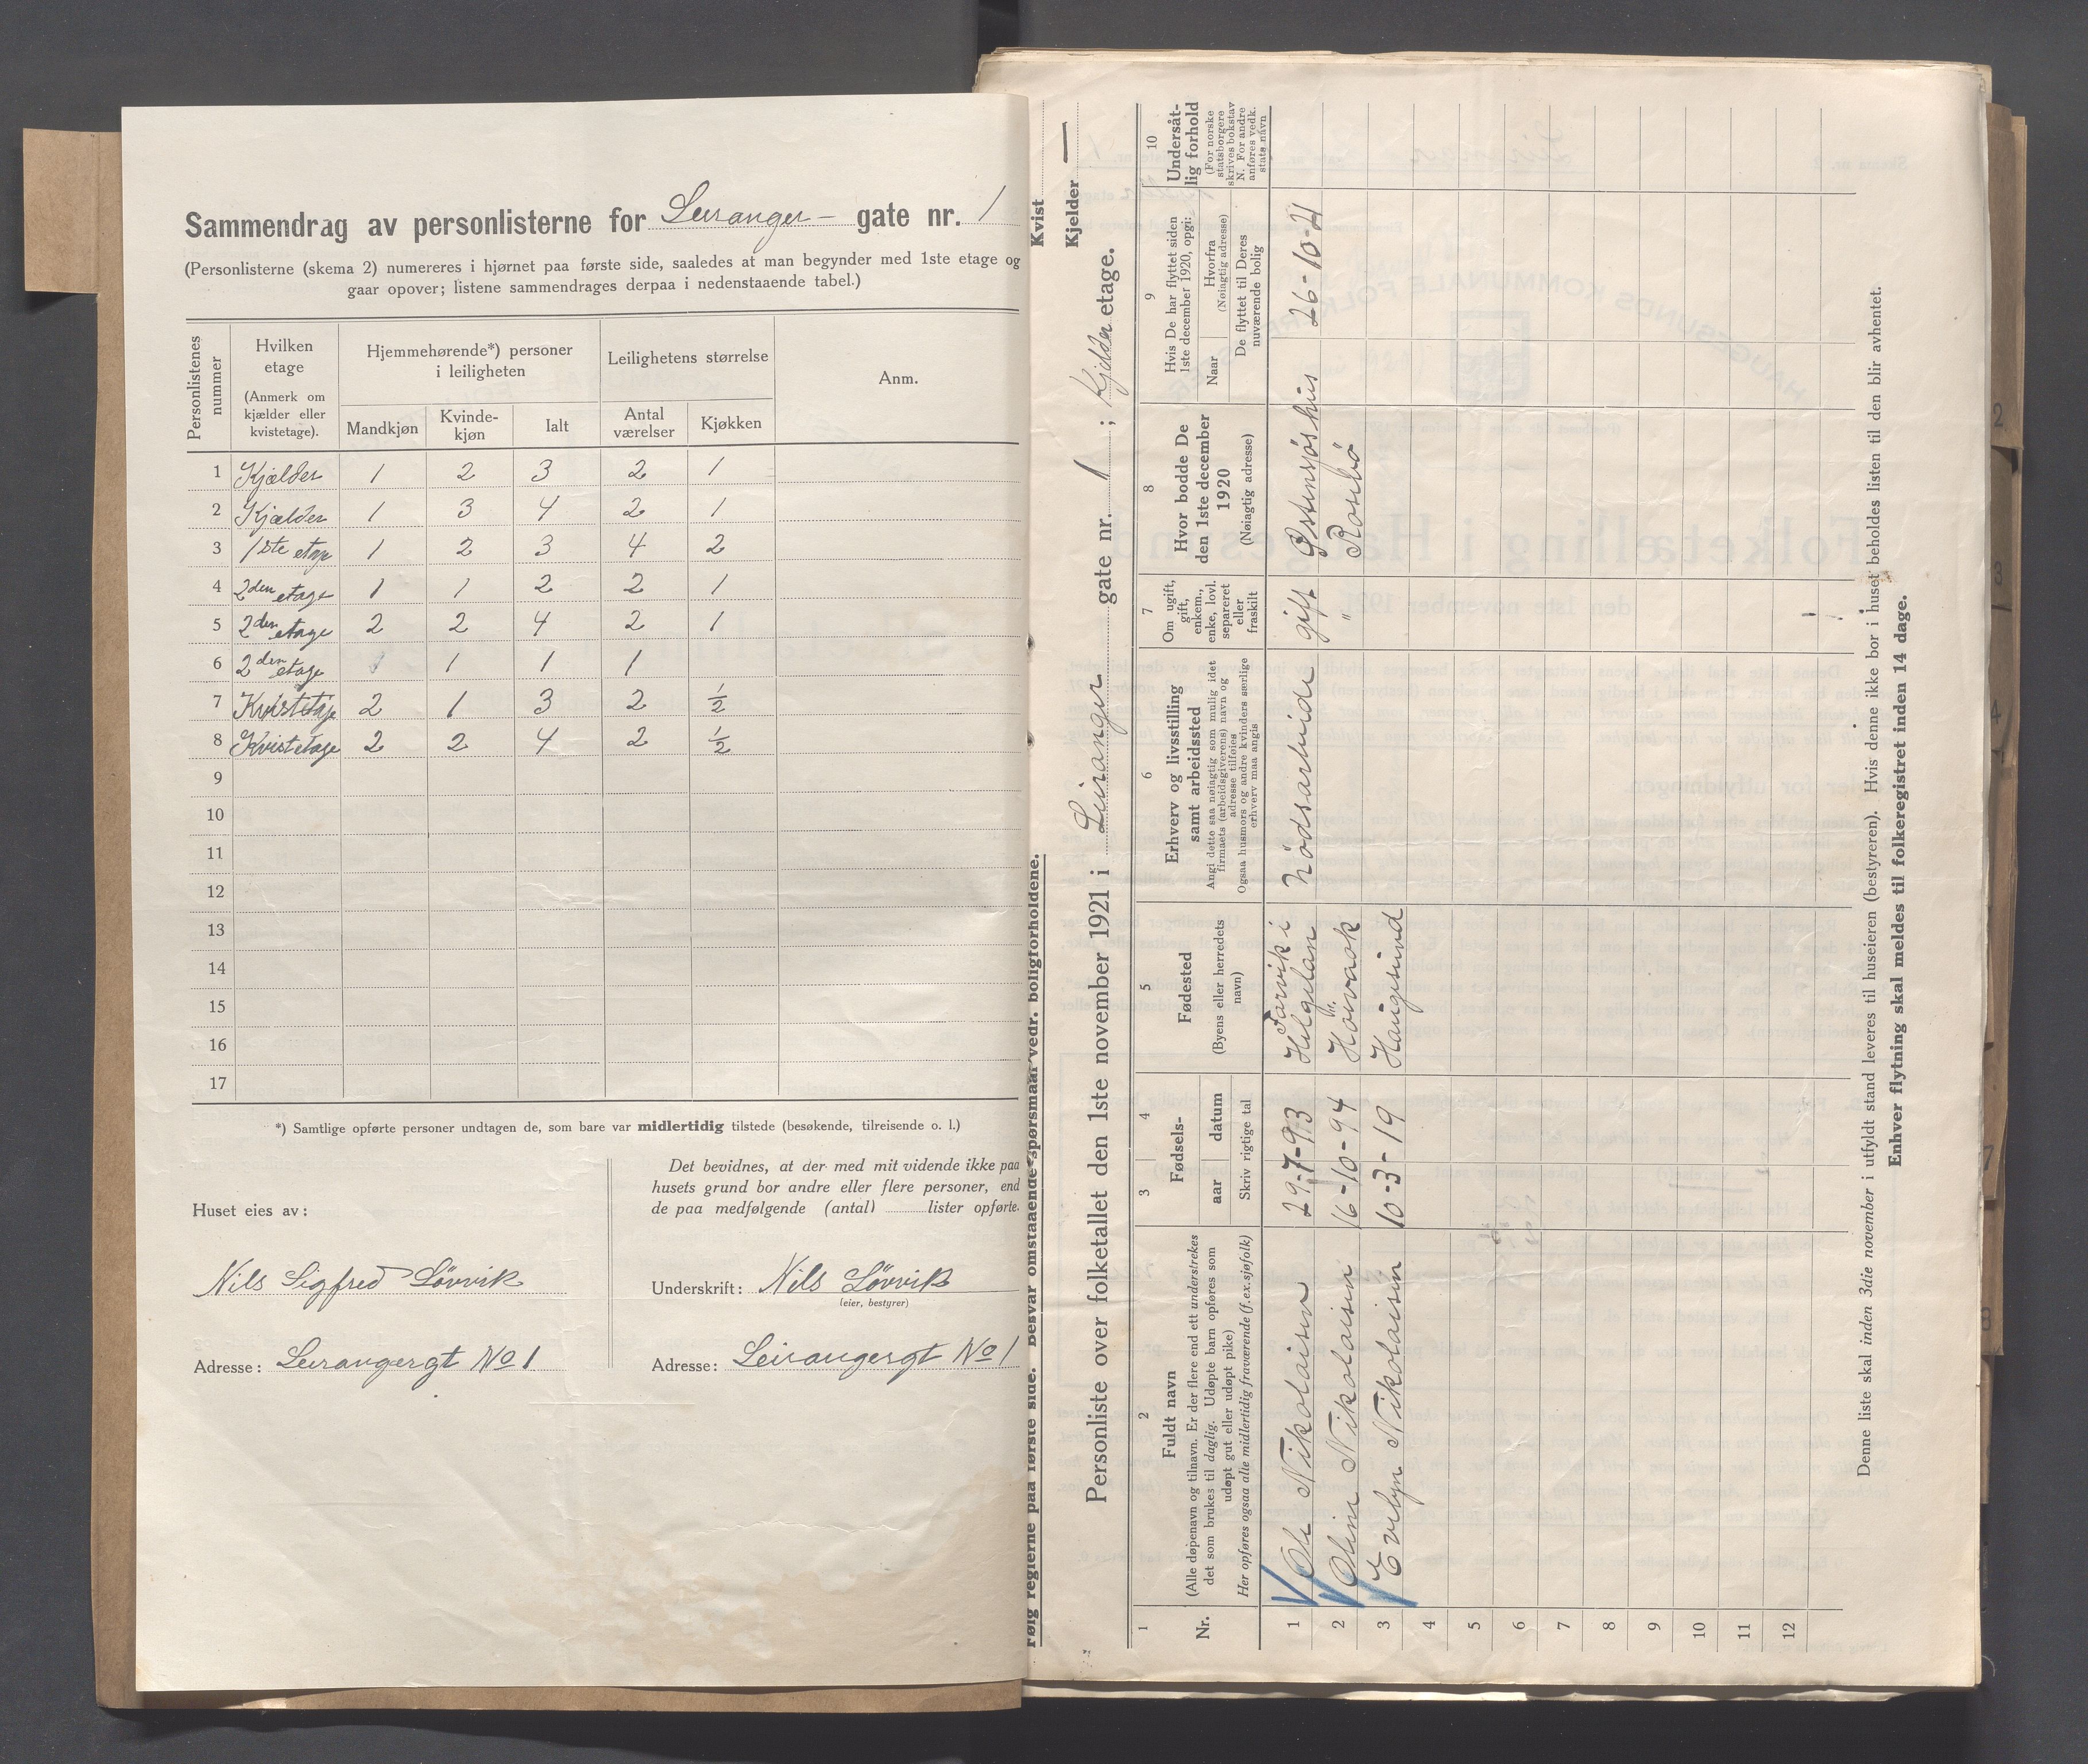 Sammendrag av personlisterne for Leiranger- gate nr. 1
(Personlisterne (skema 2) numereres i hjørnet paa første side, saaledes at man begynder med 1ste etage og
gaar opover; listene sammendrages derpaa i nedenstaaende tabel.)
Personlistenes nummer
Hvilken etage
(Anmerk om kjælder eller kvistetage).
Hjemmehørende*) personer i leiligheten
Leilighetens størrelse
Anm.
Mandkjøn Kvinde-kjøn Ialt Antal værelser Kjøkken
1 Kjælder 1 2 3 2 1
2 Kjælder 1 3 4 2 1
3 1ste etage 1 2 3 4 2
4 2den etage 1 1 2 2 1
5 2den etage 2 2 4 2 1
6 2den etage 1 1 1
7 Kvistetage 2 1 3 2 ½
8 Kvistetage 2 2 4 2 ½
9
10
11
12
13
14
15
16
17
*) Samtlige opførte personer undtagen de, som bare var midlertidig tilstede (besøkende, tilreisende o. l.)
Huset eies av:
Nils Sigfred Løvvik
Adresse: Leirangergt No 1
Det bevidnes, at der med mit vidende ikke paa
husets grund bor andre eller flere personer, end
de paa medfølgende (antal) lister opførte.
Underskrift: Nils Løvvik
(eier, bestyrer)
Adresse: Leirangergt No 1
Følg reglerne paa første side. Besvar omstaaende spørsmaal vedr. boligforholdene.
Kvist
Kjelder —
Personliste over folketallet den 1ste november 1921 i Leiranger gate nr. 1 ; Kjelder etage.
1
Nr.
2
Fuldt navn
(Alle døpenavn og tilnavn. Er der flere end ett understrekes
det som brukes til daglig. Udøpte barn opføres som
udøpt gut eller udøpt pike)
Her opføres ogsaa alle midlertidig fraværende (f.ex.sjøfolk)
3 4
Fødsels-
aar datum
Skriv rigtige tal
5
Fødested
(Byens eller herredets
navn)
6
Erhverv og livsstilling
samt arbeidssted
Angi dette saa nøiagtig som mulig idet
firmaets (arbeidsgiverens) navn og
adresse tilføies
Ogsaa husmors og andre kvinders særlige
erhverv maa angis
7
Om ugift,
gift,
enkem.,
enke, lovl.
separeret
eller
fraskilt
8
Hvor bodde De
den 1ste december
1920
(Nøiagtig adresse)
9
Hvis De har flyttet siden
1ste december 1920, opgi:
Naar
Hvorfra
(Nøiagtig adresse)
De flyttet til Deres
nuværende bolig
10
Undersåt-
lig forhold
(For norske
statsborgere
skrives bokstav
N. For andre
anføres vedk.
stats navn
1 Ole Nikolaisen 29-7-93 Tarvik i Helgelan Nödsarbeide gift Østensjøs hus 26-10-21
2 Oline Nikolaisen 16-10-94 Hövaak " Rossebö
3 Evelyn Nikolaisen 10-3-19 Haugesund
4
5
6
7
8
9
10
11
12
Denne liste skal inden 3die november i utfyldt stand leveres til huseieren (bestyreren). Hvis denne ikke bor i huset beholdes listen til den blir avhentet.
Enhver flytning skal meldes til folkeregistret inden 14 dage.